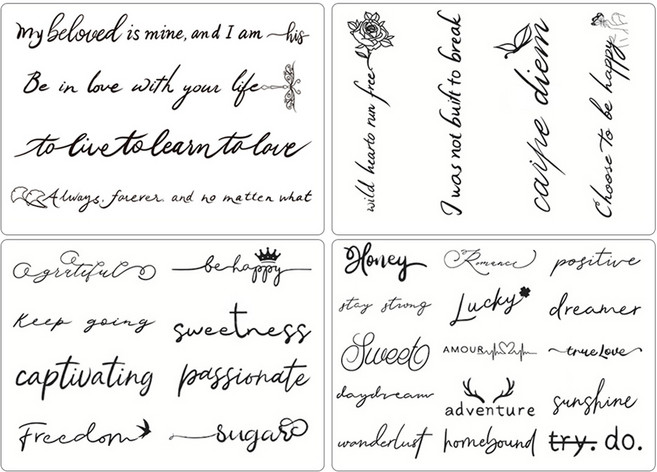 My beloved is mine, and I am his
Be in love with your life
to live to learn to love
Always, forever and no matter what
wild hearts run free
I was not built to break
carpe diem
Choose to be happy
grateful
be happy
Keep going
sweetness
captivating
passionate
Freedom
sugar
Honey
Romance
positive
stay strong
Lucky
dreamer
Sweet
AMOUR
true Love
daydream
adventure
sunshine
wanderlust
homebound
try. do.